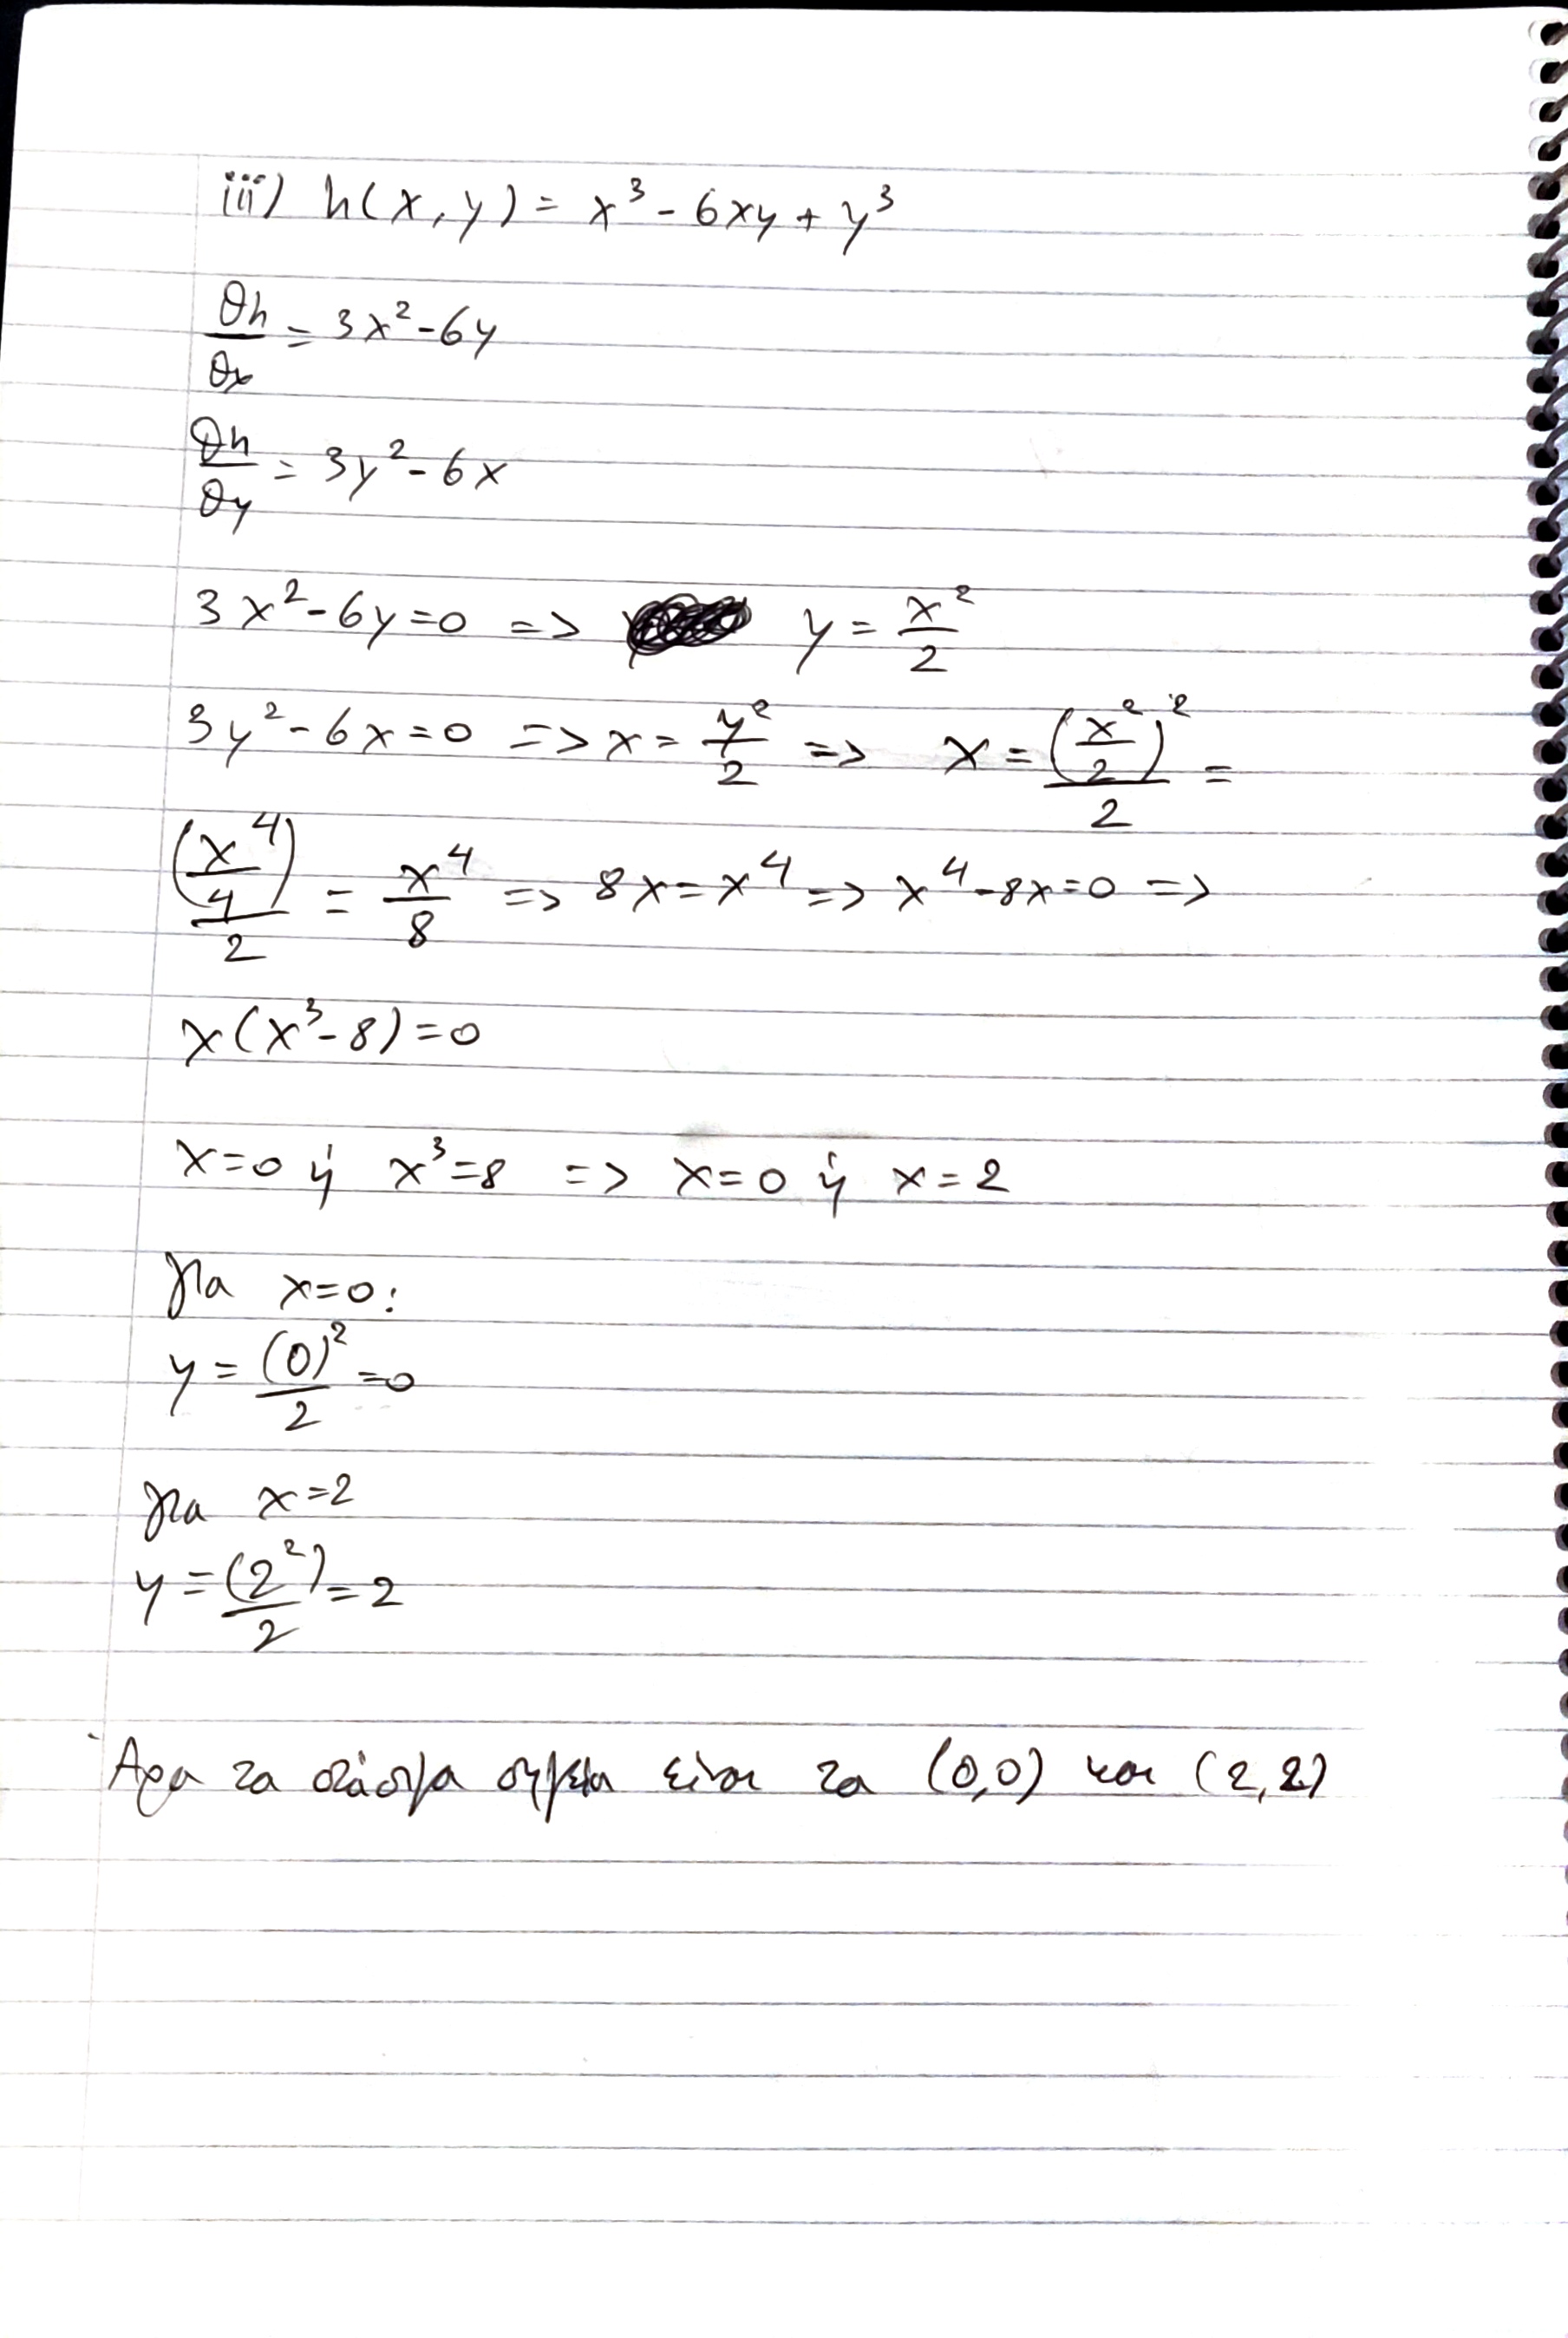 iii) h(x,y) = x³ - 6xy + y³
∂h/∂x = 3x² - 6y
∂h/∂y = 3y² - 6x
3x² - 6y = 0 => y = x²/2
3y² - 6x = 0 => x = y²/2 => x = (x²/2)²/2 =
(x⁴/4)/2 = x⁴/8 => 8x = x⁴ => x⁴ - 8x = 0 =>
x(x³ - 8) = 0
x = 0 ή x³ = 8 => x = 0 ή x = 2
για x = 0:
y = (0)²/2 = 0
για x = 2
y = (2²)/2 = 2
Άρα τα στάσιμα σημεία είναι τα (0,0) και (2,2)